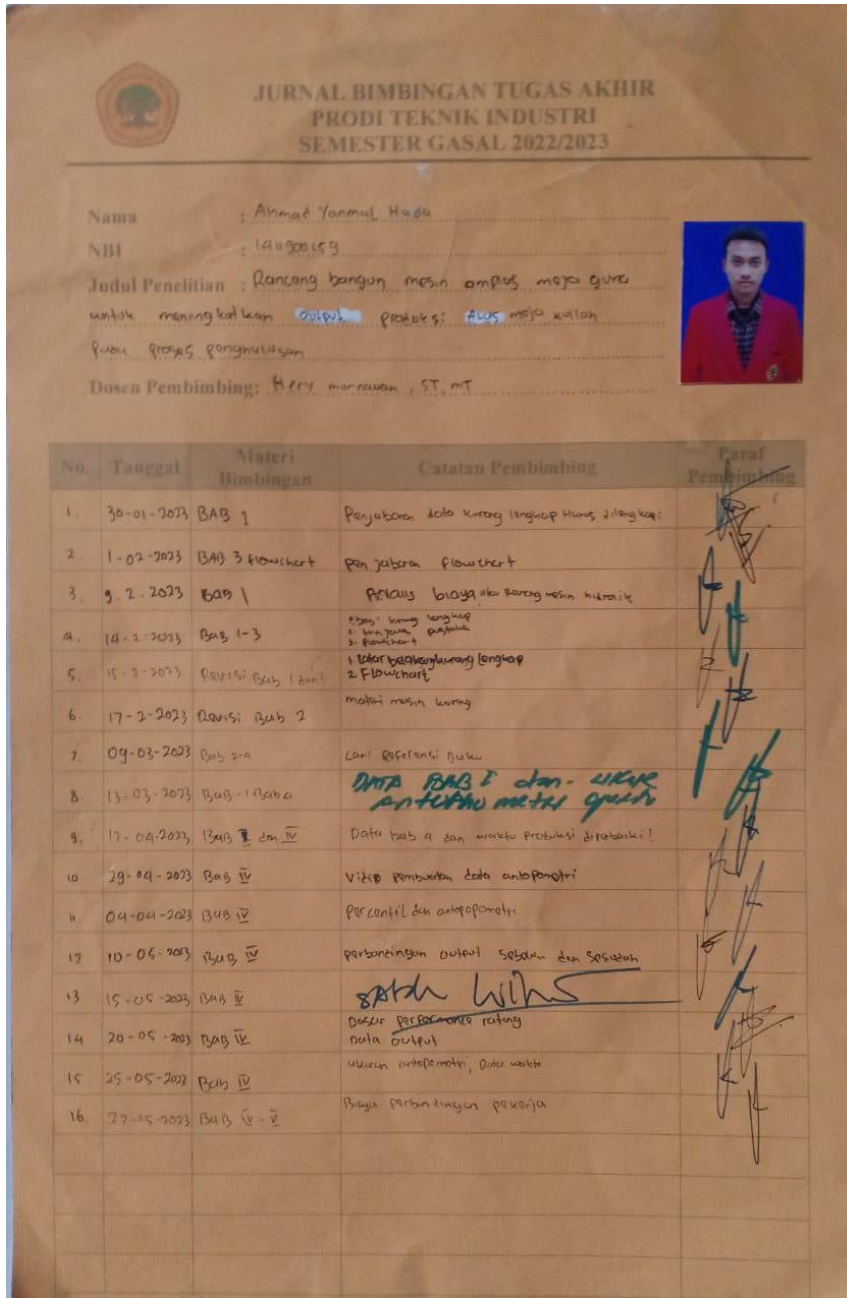 JURNAL BIMBINGAN TUGAS AKHIR
PRODI TEKNIK INDUSTRI
SEMESTER GASAL 2022/2023
Nama : Ahmad Yanmul Huda
NBI :
Judul Penelitian : Rancang bangun mesin amplas meja gura
untuk meningkatkan output produksi Alas meja
proses penghalusan
Dosen Pembimbing: Hery murnawan, ST, MT
No. Tanggal Materi Bimbingan Catatan Pembimbing Paraf Pembimbing
1. 30-01-2023 BAB 1 Penjabaran data kurang lengkap Harus dilengkapi
2. 1-02-2023 BAB 3 flowchart penjabaran flowchart
3. 9.2.2023 Bab 1 biaya mesin hidrolik
4. 14-2-2023 Bab 1-3 kurang lengkap
3. flowchart
5. 15-2-2023 Revisi Bab 1 1 latar belakang kurang lengkap
2 Flowchart
6. 17-2-2023 Revisi Bab 2 materi mesin kurang
7. 09-03-2023 Bab 2-4 cari Referensi Buku
8. 13-03-2023 BAB-1 Bab 4 DATA BAB I dan
9. 17-04-2023 BAB I dan IV Data bab 4 dan waktu Produksi diperbaiki!
10 29-04-2023 Bab IV pembuatan data antopometri
11 04-04-2023 BAB IV Percentil dan antopopometri
12 10-05-2023 BAB IV perbandingan output sebelum dan sesudah
13 15-05-2023 BAB IV
14 20-05-2023 BAB IV Dasar performance rating
Data output
15 25-05-2023 Bab IV ukuran antopometri, Data waktu
16. 27-05-2023 BAB IV - V Biaya perbandingan pekerja